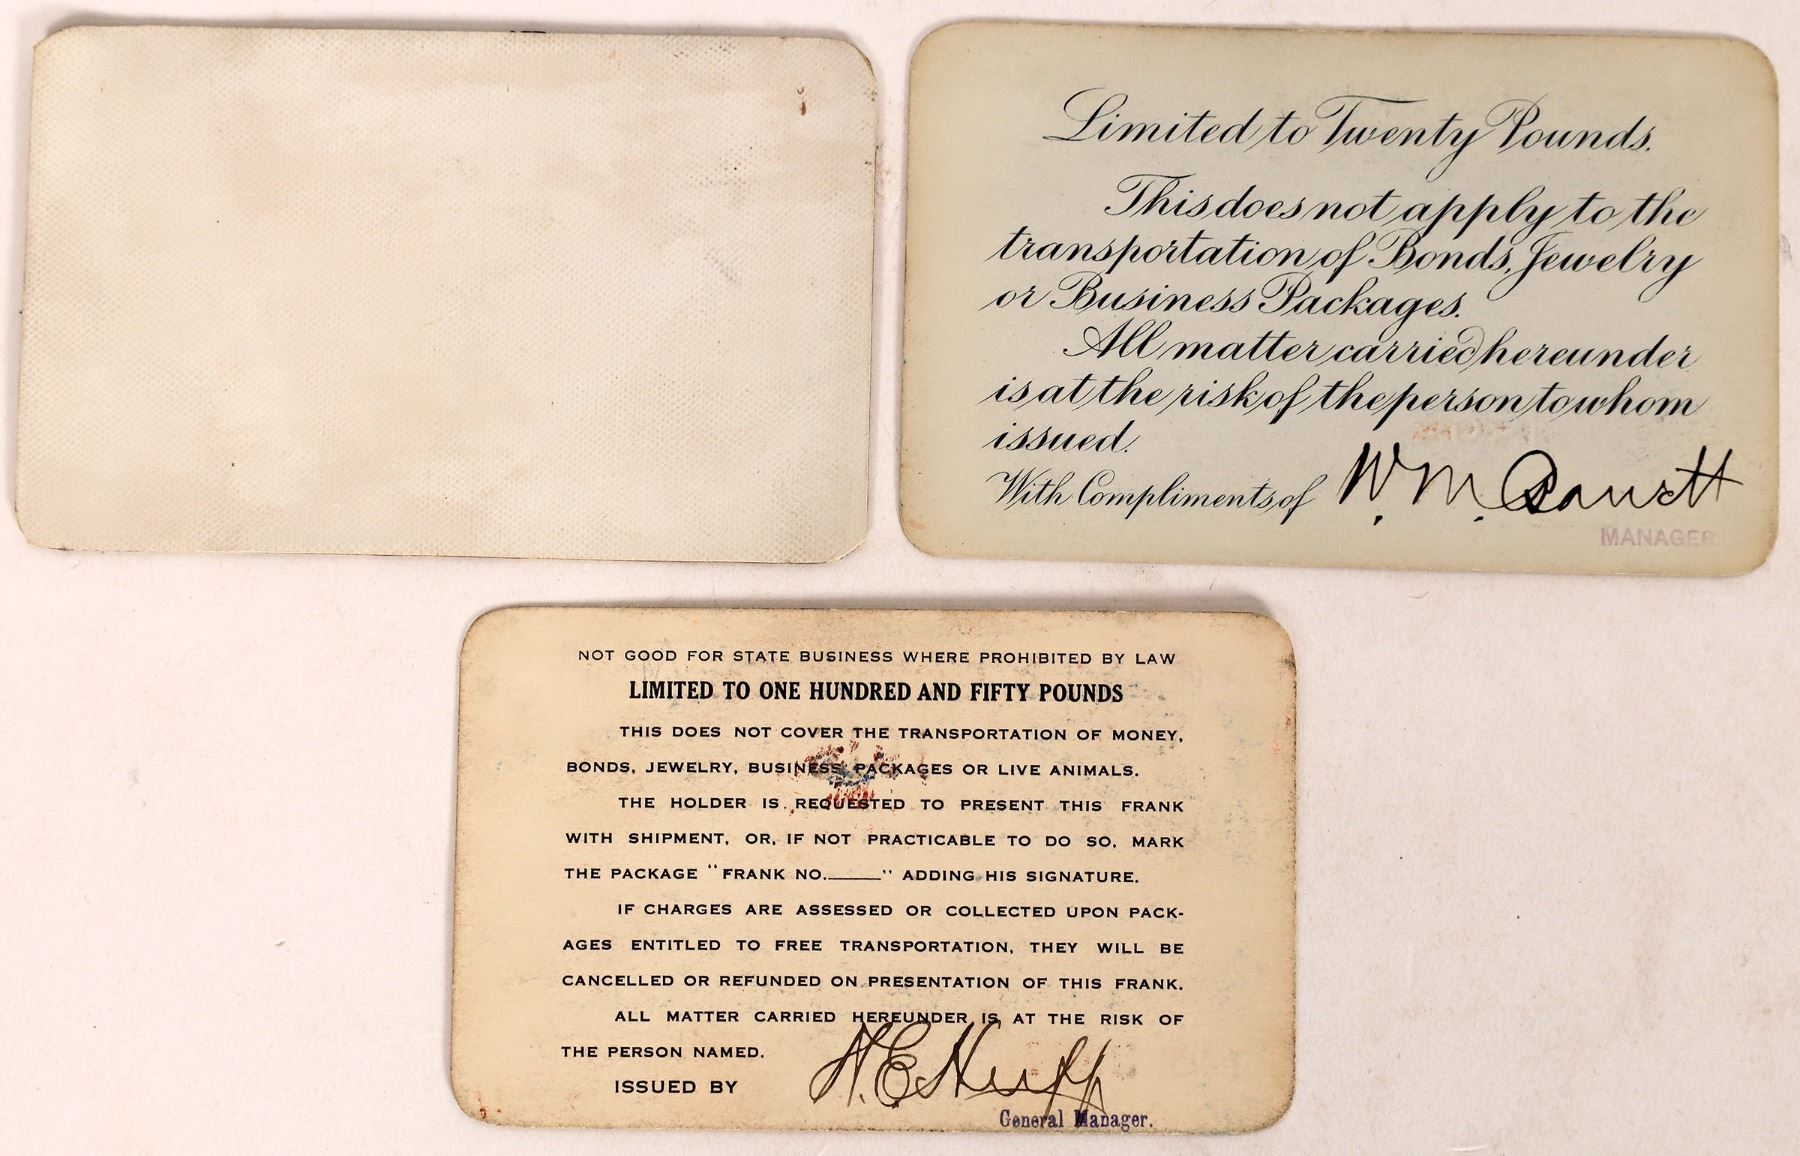 Limited to Twenty Pounds.
This does not apply to the
transportation of Bonds, Jewelry
or Business Packages.
All matter carried hereunder
is at the risk of the person to whom
issued.
With Compliments of W. M.
MANAGER.
NOT GOOD FOR STATE BUSINESS WHERE PROHIBITED BY LAW
LIMITED TO ONE HUNDRED AND FIFTY POUNDS
THIS DOES NOT COVER THE TRANSPORTATION OF MONEY,
BONDS, JEWELRY, BUSINESS PACKAGES OR LIVE ANIMALS.
THE HOLDER IS REQUESTED TO PRESENT THIS FRANK
WITH SHIPMENT, OR, IF NOT PRACTICABLE TO DO SO, MARK
THE PACKAGE "FRANK NO.____" ADDING HIS SIGNATURE.
IF CHARGES ARE ASSESSED OR COLLECTED UPON PACK-
AGES ENTITLED TO FREE TRANSPORTATION, THEY WILL BE
CANCELLED OR REFUNDED ON PRESENTATION OF THIS FRANK.
ALL MATTER CARRIED HEREUNDER IS AT THE RISK OF
THE PERSON NAMED.
ISSUED BY H. E. Huff
General Manager.